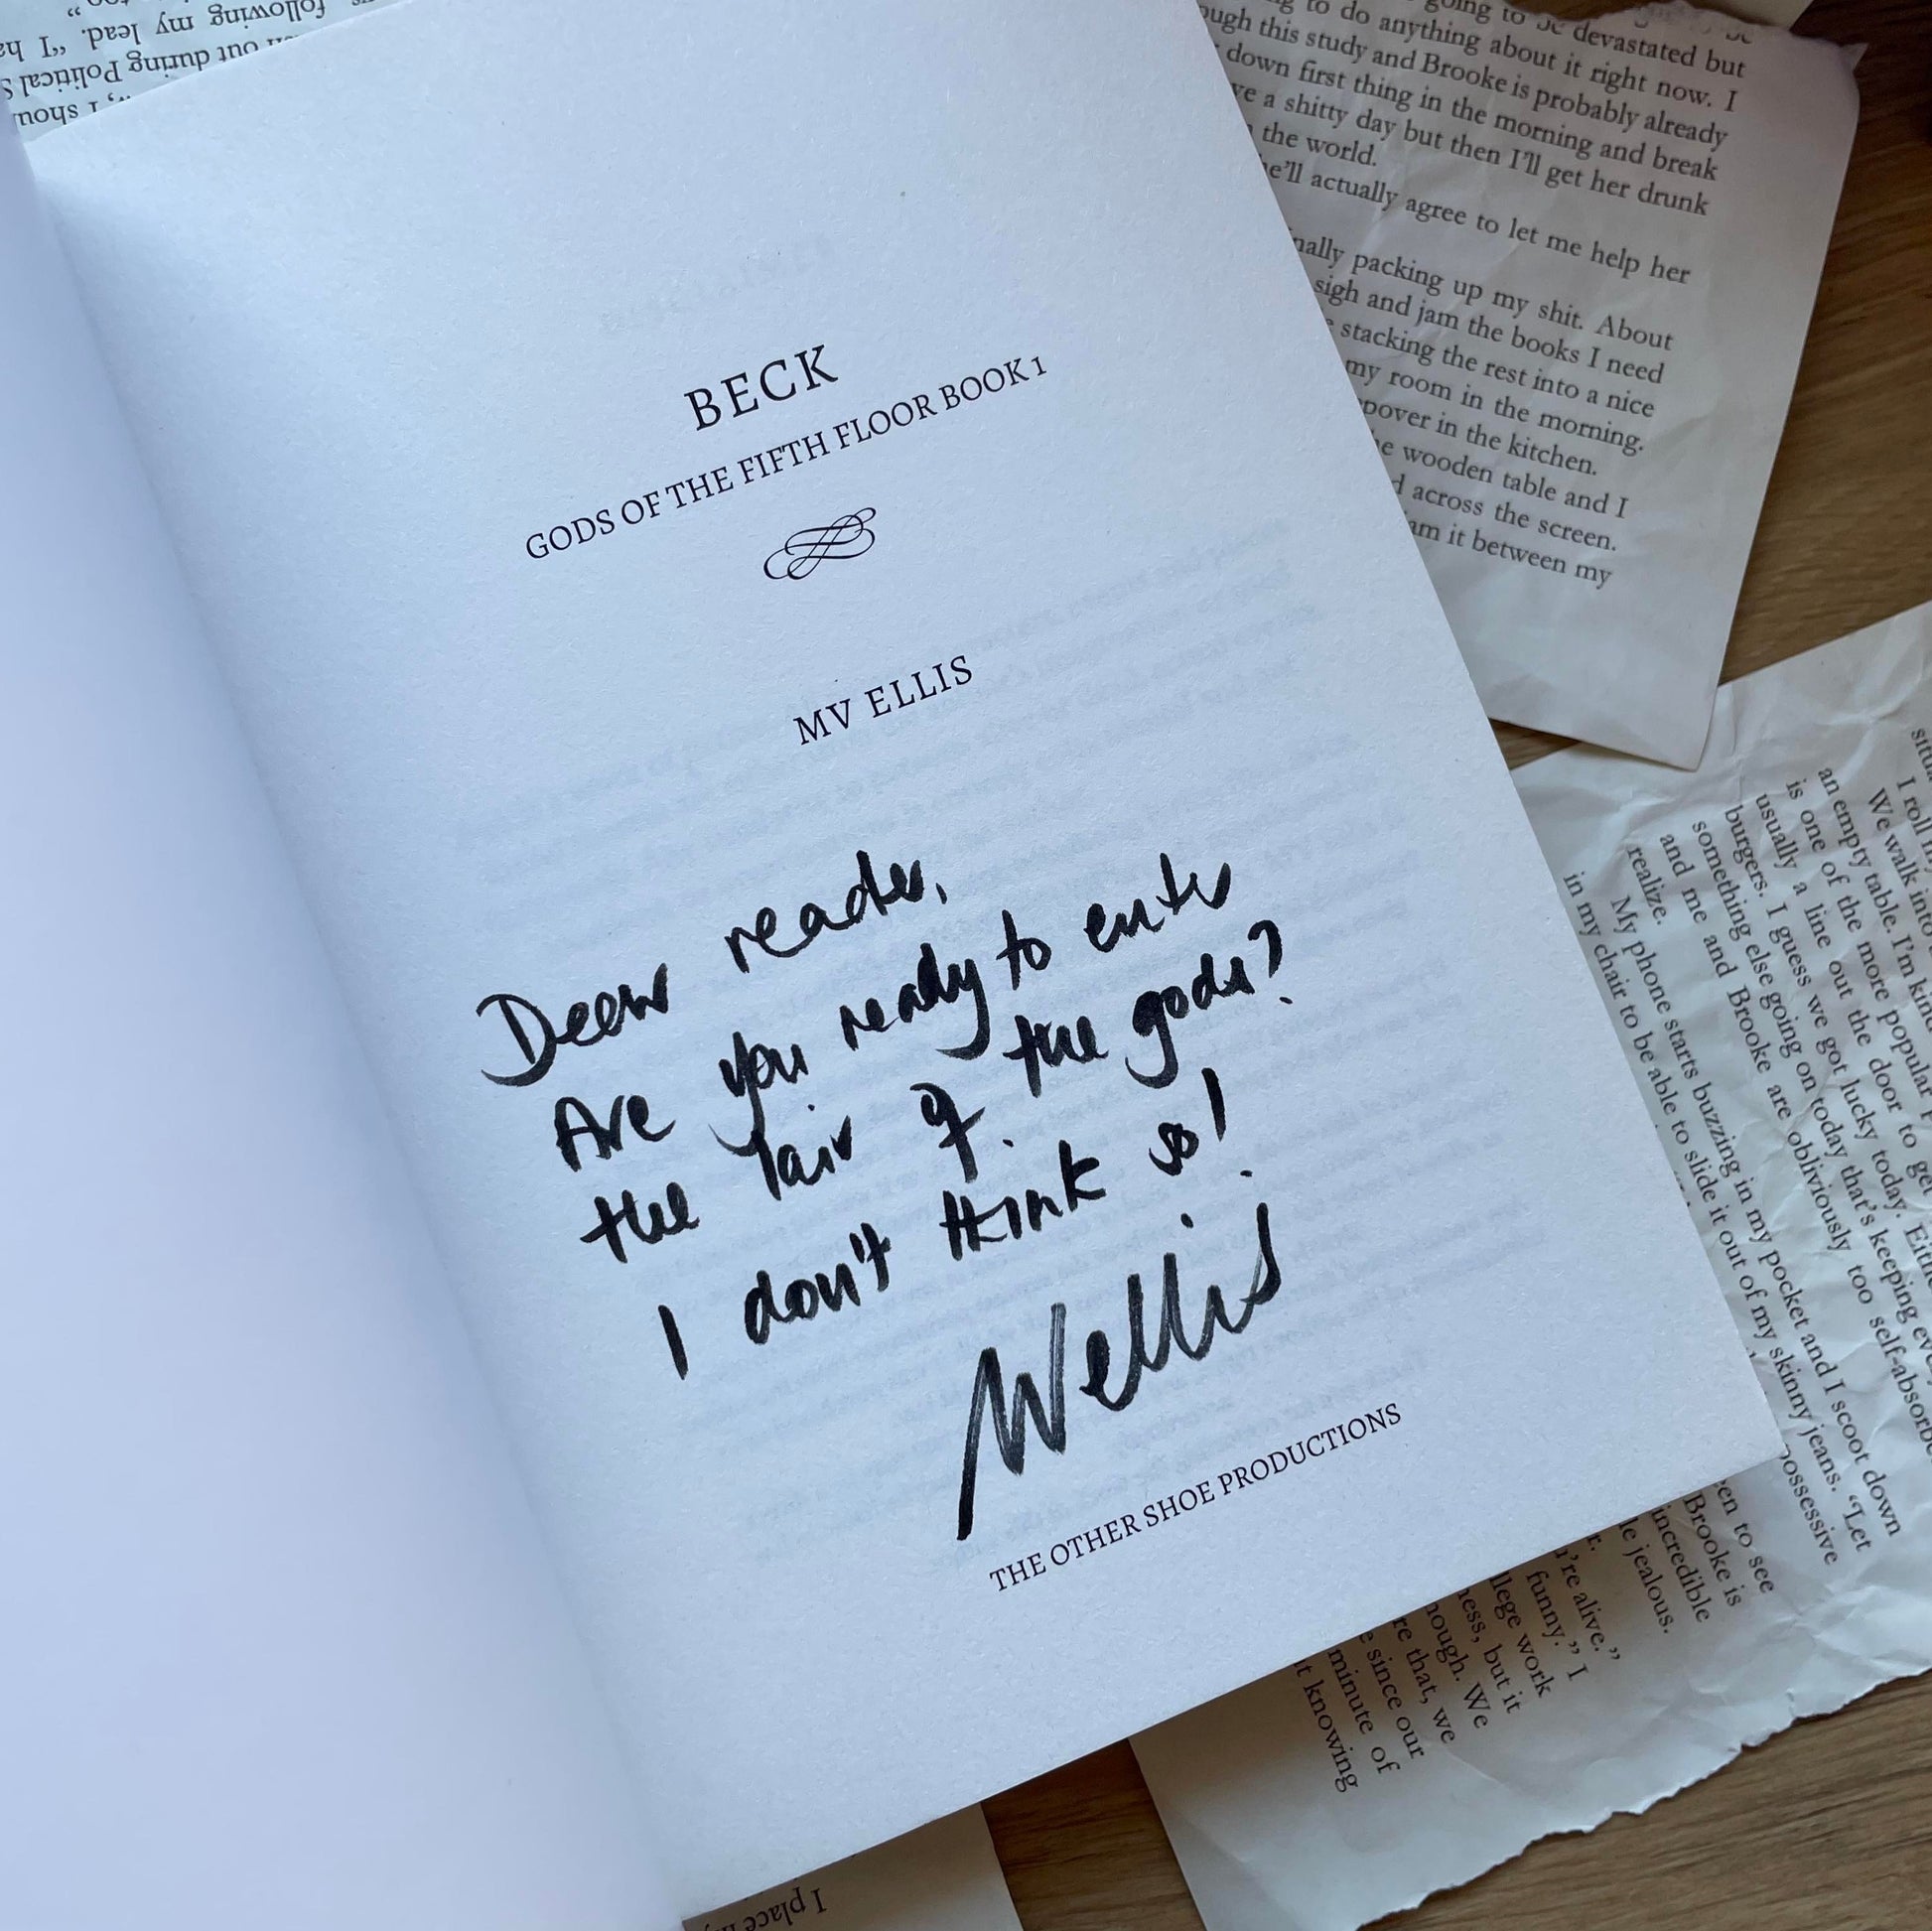 BECK
GODS OF THE FIFTH FLOOR BOOK 1
MV ELLIS
Dear reader,
Are you ready to enter
the lair of the gods?
I don't think so!
MVellis
THE OTHER SHOE PRODUCTIONS
following my lead. "I
out during
Political
I
going to be devastated but
to do anything about it right now. I
this study and Brooke is probably already
down first thing in the morning and break
a shitty day but then I'll get her drunk
the world.
actually agree to let me help her
packing up my shit. About
sigh and jam the books I need
stacking the rest into a nice
my room in the morning.
in the kitchen.
wooden table and I
across the screen.
it between my
I roll
We walk into
an empty table. I'm
is one of the more popular
usually a line out the door to get
burgers. I guess we got lucky today.
something else going on today that's keeping
and me and Brooke are obliviously too
realize.
My phone starts buzzing in my pocket and I scoot down
in my chair to be able to slide it out of my skinny jeans. "Let
possessive
to see
Brooke is
incredible
jealous.
alive."
funny." I
work
but it
We
that, we
since our
minute of
knowing
I place